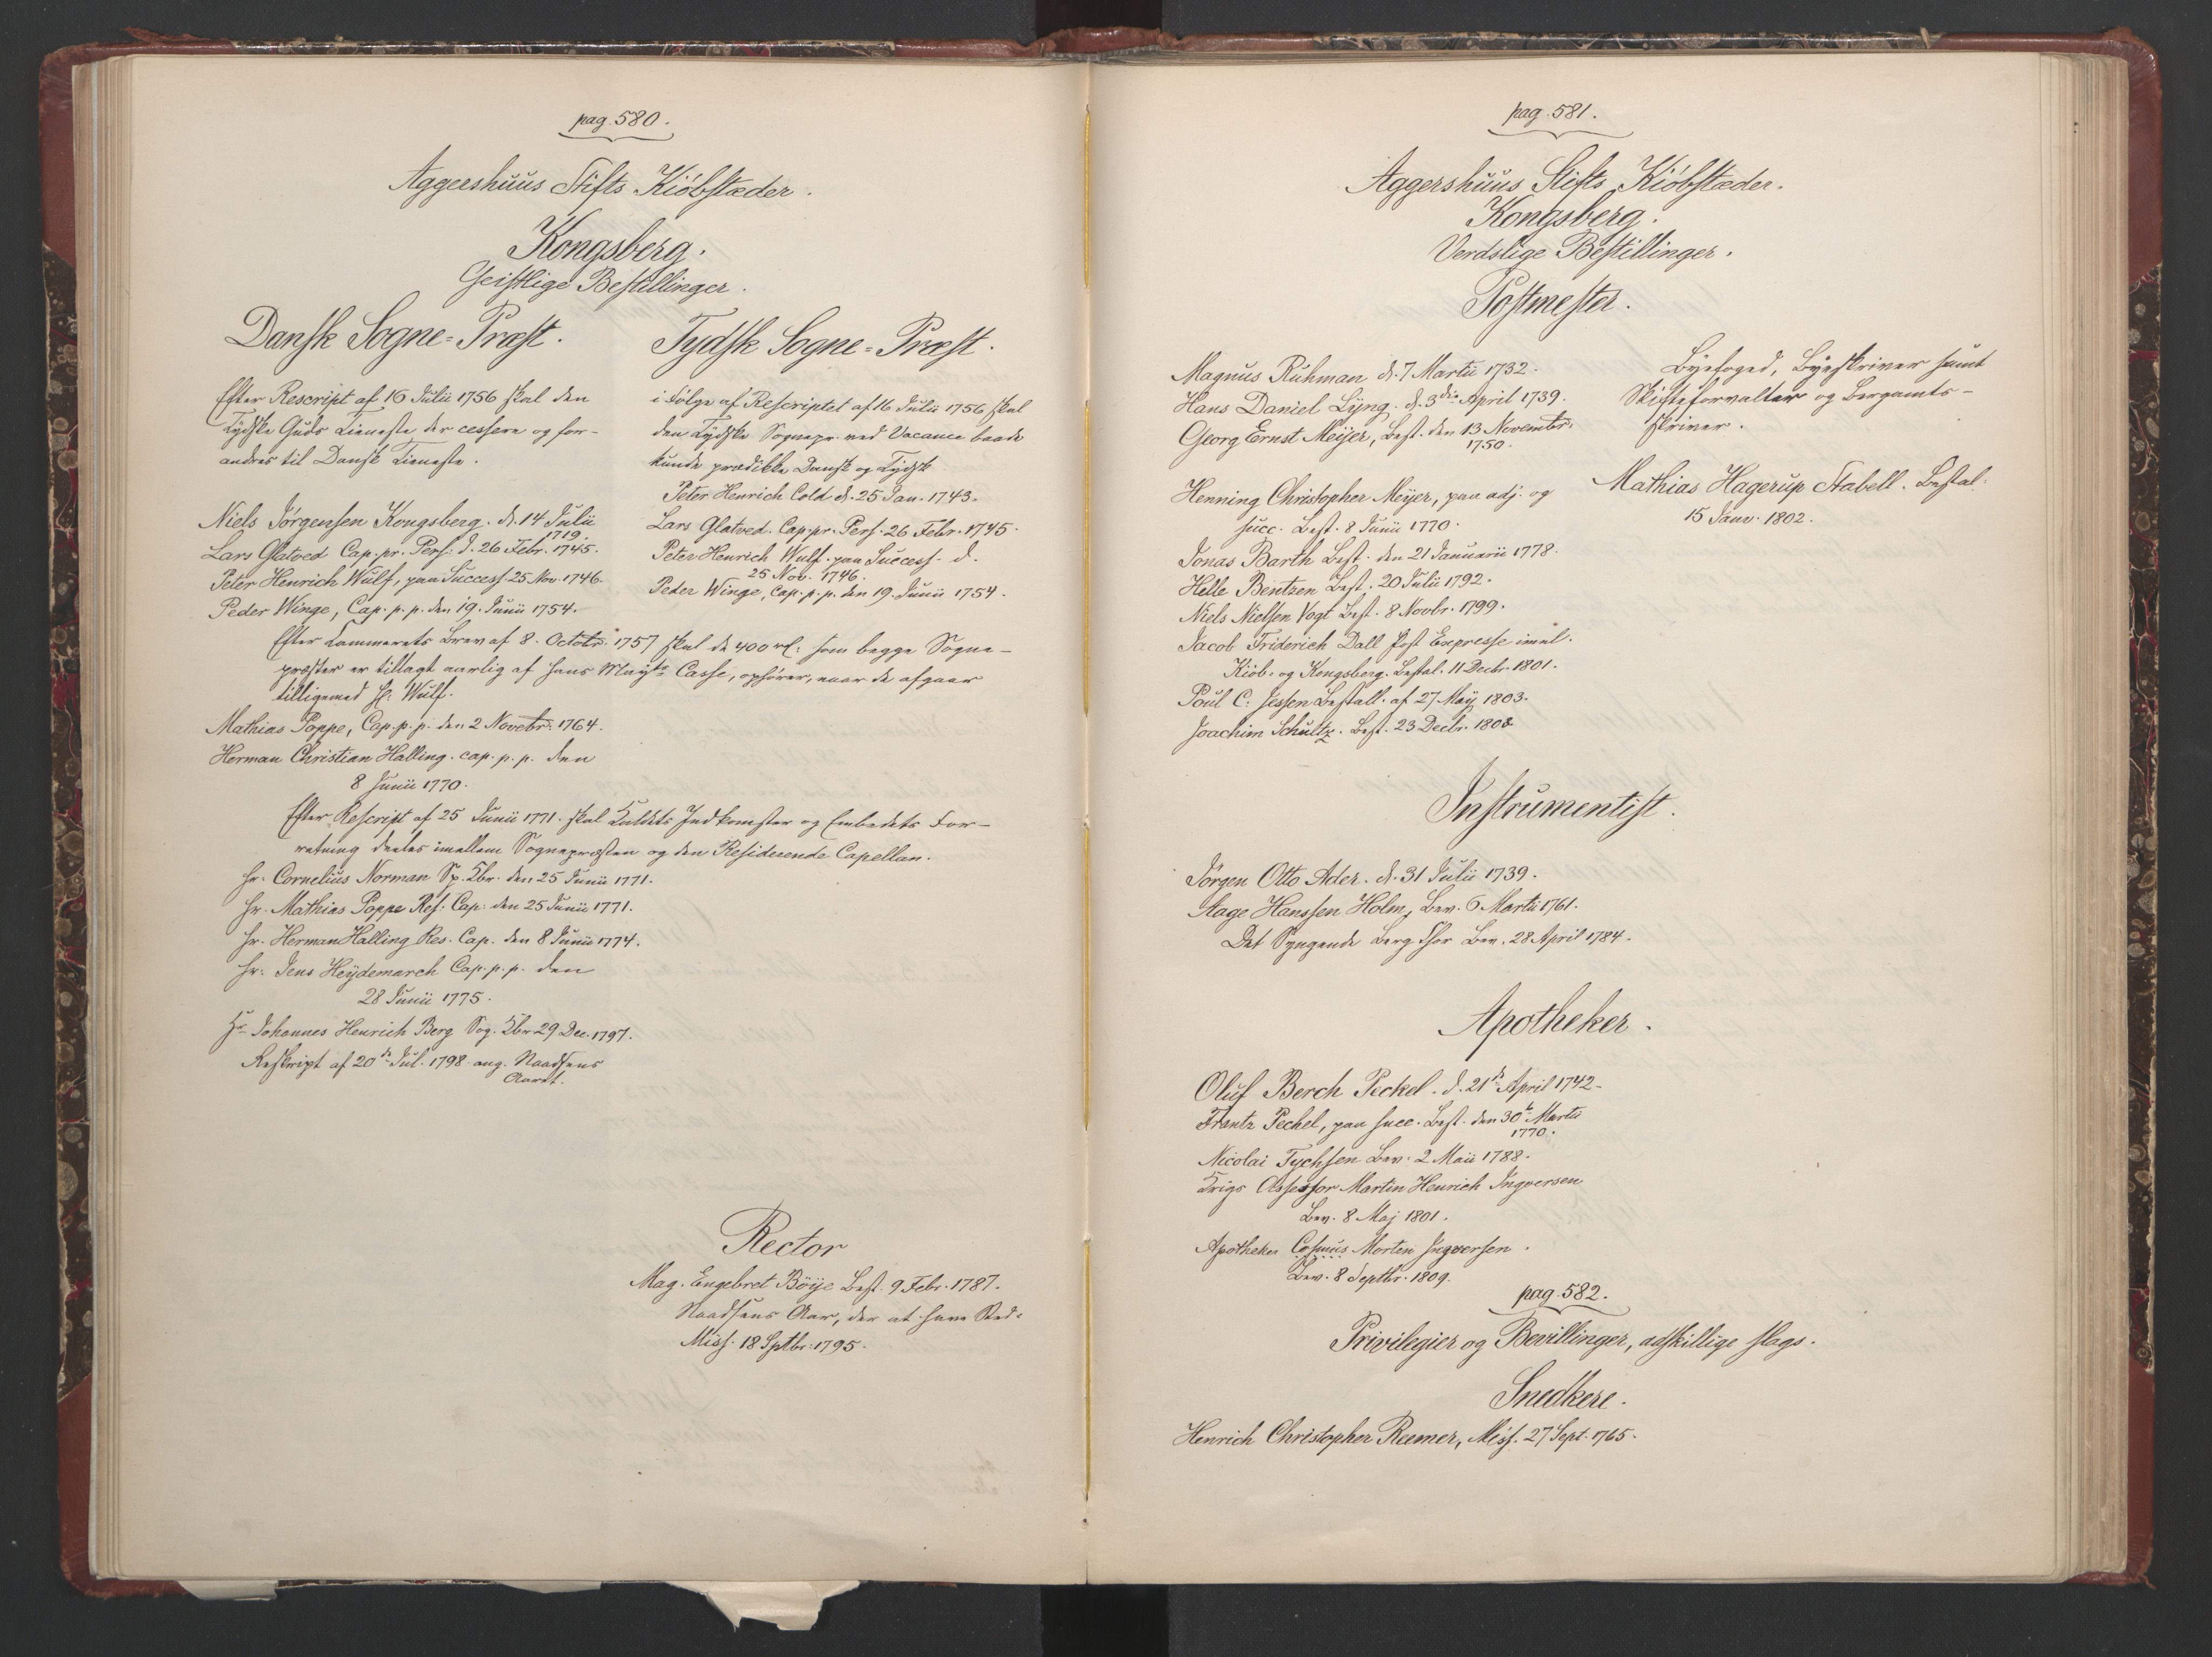 pag. 580.
Aggershuus Stifts Kiöbstæder.
Kongsberg.
Geistlige Bestillinger.
Dansk Sogne-Præst.
Efter Rescript af 16 Julii 1756 skal den
Tydske Guds Tieneste der cessere og for-
andres til Dansk Tieneste.
Niels Jörgensen Kongsberg. d. 14 Julii
1719.
Lars Glatved Cap. pr. Pers: d. 26 Febr. 1745.
Peter Henrich Wulf, paa Success. 25 Nov. 1746.
Peder Winge, Cap. p. p. den 19. Junii 1754.
Tydsk Sogne-Præst.
i Fölge af Rescriptet af 16 Julii 1756 skal
den Tydske Sognepr. ved Vacance baade
kunde prædikke Dansk og Tydsk
Peter Henrich Cold d. 25 Jan. 1743.
Lars Glatved. Cap. pr. Pers. 26 Febr. 1745.
Peter Henrich Wulf. paa Success. d.
25 Nov. 1746.
Peder Winge, Cap. p. p. den 19. Junii 1754.
Efter Cammerets Brev af 8. Octobr. 1757 skal de 400 rd: som begge Sogne-
præster er tillagt aarlig af Hans Mayts Casse, ophörer, naar de afgaar
tilligemed Hr: Wulf.
Mathias Poppe, Cap. p. p. den 2 Novebr. 1764.
Herman Christian Halling. cap. p. p. den
8 Junii 1770.
Efter Rescript af 25 Junii 1771. skal Kaldets Indkomster og Embedets For-
retning deeles imellem Sognepræsten og den Residerende Capellan.
Hr. Cornelius Norman Sp. Kbr. den 25 Junii 1771.
Hr. Mathias Poppe Res: Cap: den 25 Junii 1771.
Hr. Herman Halling Res. Cap. den 8 Junii 1774.
Hr: Jens Heÿdemarch Cap. p. p. den
28 Junii 1775.
Hr Johannes Henrich Berg Sog. Kbr 29 Dec. 1797.
Reskript af 20de Jul. 1798 ang. Naadsens
Aaret.
Rector
Mag. Engebret Böÿe Best. 9 Febr. 1787.
Naadsens Aar, der at have Sted:
Miss. 18 Sptbr. 1795.
pag. 581.
Aggershuus Stifts Kiöbstæder.
Kongsberg.
Verdslige Bestillinger.
Postmester.
Magnus Ruhman d. 7 Martii 1732.
Hans Daniel Lÿng. d. 3die April 1739.
Georg Ernst Meÿer, Best. den 13 Novembr.
1750.
Henning Christopher Meÿer, paa adj. og
succ. Best. 8 Junii 1770.
Jonas Barth Best. den 21 Januarii 1778.
Helle Bentzen Best: 20 Julii 1792.
Niels Nielsen Vogt Best. 8 Novbr. 1799.
Jacob Friderich Dall Post Expresse imel.
Kiöb. og Kongsberg. Bestal. 11 Decbr. 1801.
Poul C. Jessen Bestall. af 27 Maÿ 1803.
Joachim Schultz. Best. 23 Decbr. 1808
Bÿefoged, Bÿeskriver samt
Skifteforvalter og Bergamts-
skriver.
Mathias Hagerup Stabell. Bestal.
15 Janv. 1802.
Instrumentist.
Jörgen Otto Ader. d. 31 Julii 1739.
Aage Hanssen Holm, Bev. 6 Martii 1761.
Det Syngende Berg Chor Bev. 28 April 1784.
Apotheker.
Oluf Berch Peckel. d. 21de April 1742.
Frantz Pechel, paa succ. Best. den 30te Martii
1770.
Nicolai Tychsen Bev. 2 Maii 1788.
Krigs Assessor Martin Henrich Ingversen
Bev. 8 Maj 1801.
Apotheker Cosmus Morten Ingversen.
Bev. 8 Septbr. 1809.
pag. 582.
Privilegier og Bevillinger, adskillige slags.
Snedkere.
Henrich Christopher Reemer, Miss. 27 Sept. 1765.